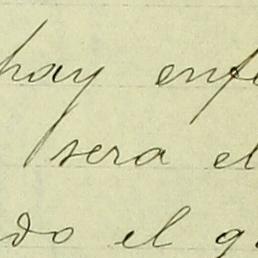 hay enfe
sera el
do el q